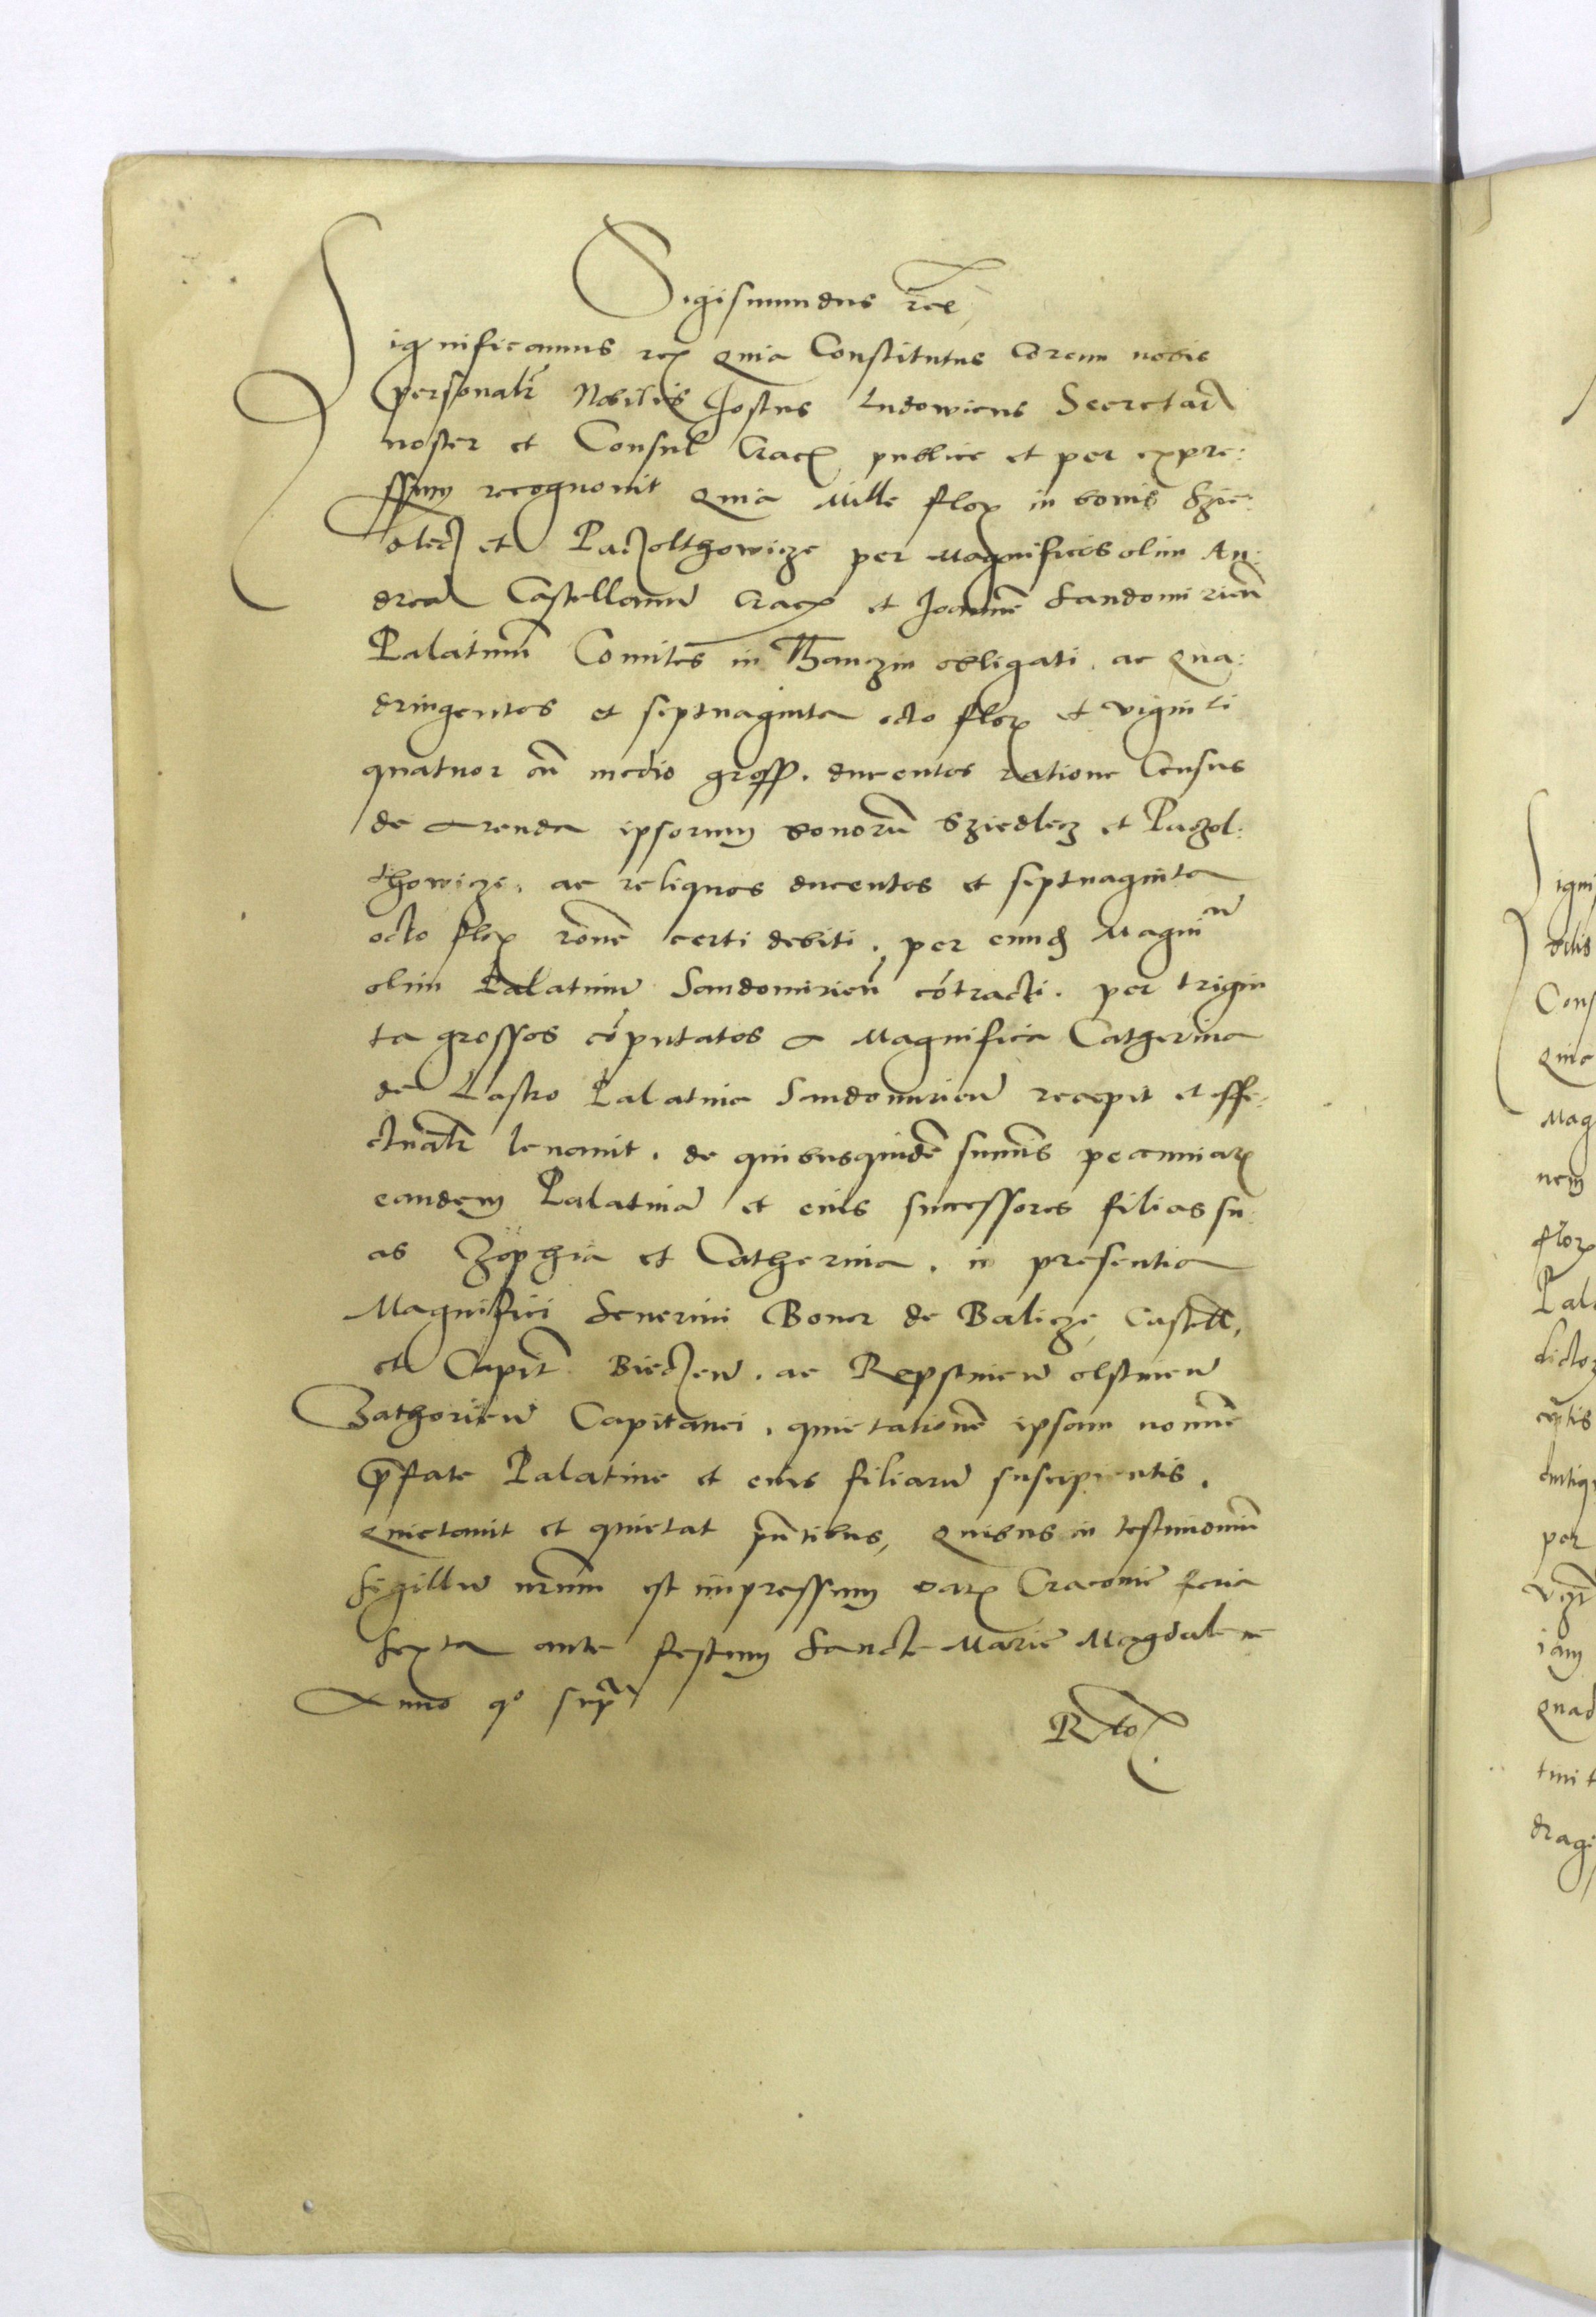 Sigismundus etc
Significamus etc quia Constitutus coram nobis
personalr Nobilis Jostus Ludowicus Secretari
noster et Consul Crac publice et per expre:
ssum recognovit Quia Mille flor in bonis Szie:
dlecz et Paczolthowicze per Magnificos olim An:
dream Castellanu Crac et Joannē Sandomiriēn
Palatinum Comites in Thanczin obligati. ac qua:
dringentos et septuaginta octo flor et viginti
quatuor cū medio gross. ducentos ratione Census
de arenda ipsorum bonorū Sziedlecz et Paczol:
thowicze. ac reliquos ducentos et septuaginta
octo flor rōnē certi debiti. per eund Magniu
olim Palatinu Sandomirien cōtracti. per trigin
ta grossos cōputatos a Magnifica Catherina
de Lasko Palatina Sandomirien recepit et effe:
ctualr levavit. de quibusquidē sumis pecuniar
eandem Palatina et eius successores filias su
as Zophia et Catherina. in presentia
Magnifici Severini Boner de Balicze, Castell,
et Capit Bieczen. ac Repstinen Olstinen
Zathorien Capitanei. quietationē ipsam nomine
pfate Palatine et eius filiaru suscipientis.
Quietavit et quietat pntibus, Quibus in testimoniū
sigillu nrum est impressum Dat Cracovie feria
sexta ante festum Sancte Marie Magdalene
Anno qo supra
Rto

igni
bilis
Cons
Quia
Mag
nem
flor
Pal
dicto
per
iam
Quad
dragi